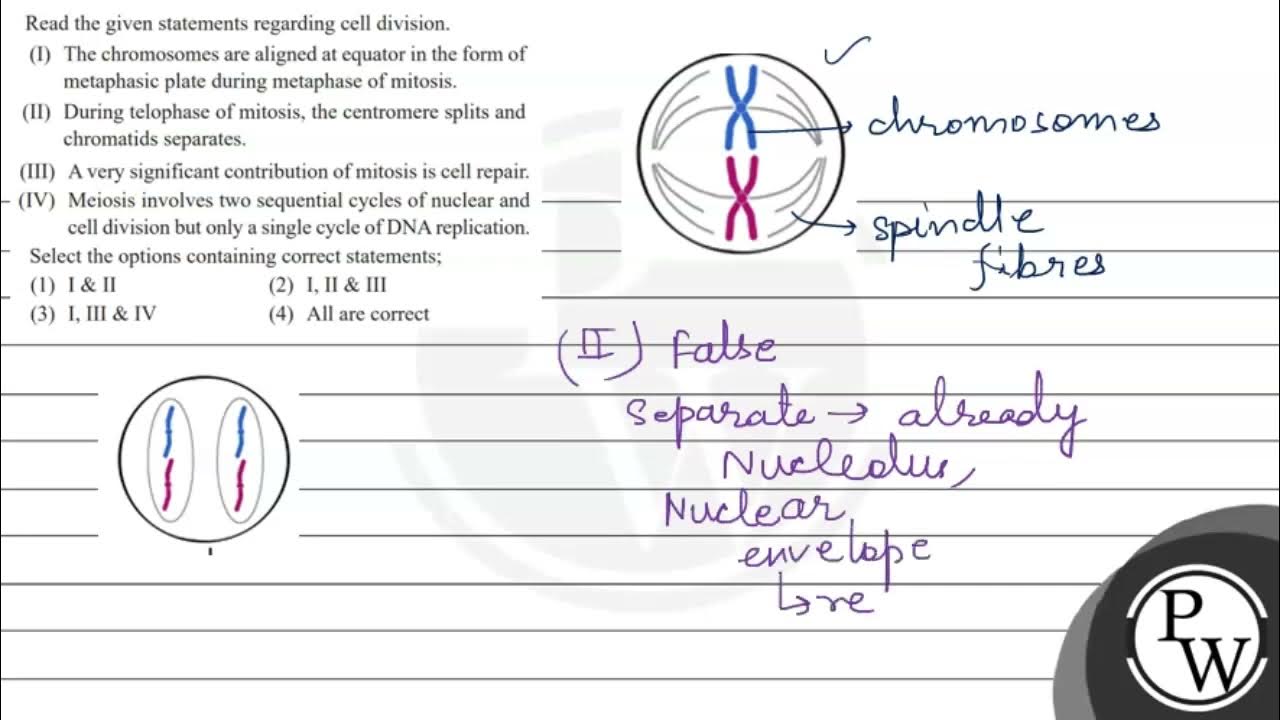 Read the given statements regarding cell division.
(I) The chromosomes are aligned at equator in the form of
metaphasic plate during metaphase of mitosis.
(II) During telophase of mitosis, the centromere splits and
chromatids separates.
(III) A very significant contribution of mitosis is cell repair.
(IV) Meiosis involves two sequential cycles of nuclear and
cell division but only a single cycle of DNA replication.
Select the options containing correct statements;
(1) I & II (2) I, II & III
(3) I, III & IV (4) All are correct
chromosomes
spindle
fibres
(II) False
Separate → already
Nucleolus,
Nuclear
envelope
↳ re
P
W